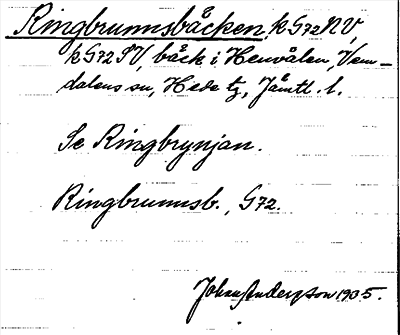 Ringbrunnsbäcken, k G72 NV,
k G72 SV, bäck i Henvålen, Vem-
dalens sn, Hede tg, Jämtl. l.
Se Ringbrynjan.
Ringbrunnsb., G72.
Johan Anderzson 1905.